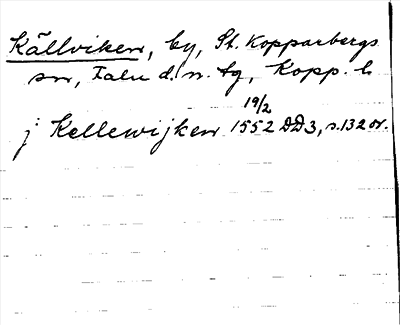 Källviken, by, St. Kopparbergs
sn, Falu d. n. tg, Kopp. l.
19/2
j Kellewijken 1552 DD3, s. 132 or.